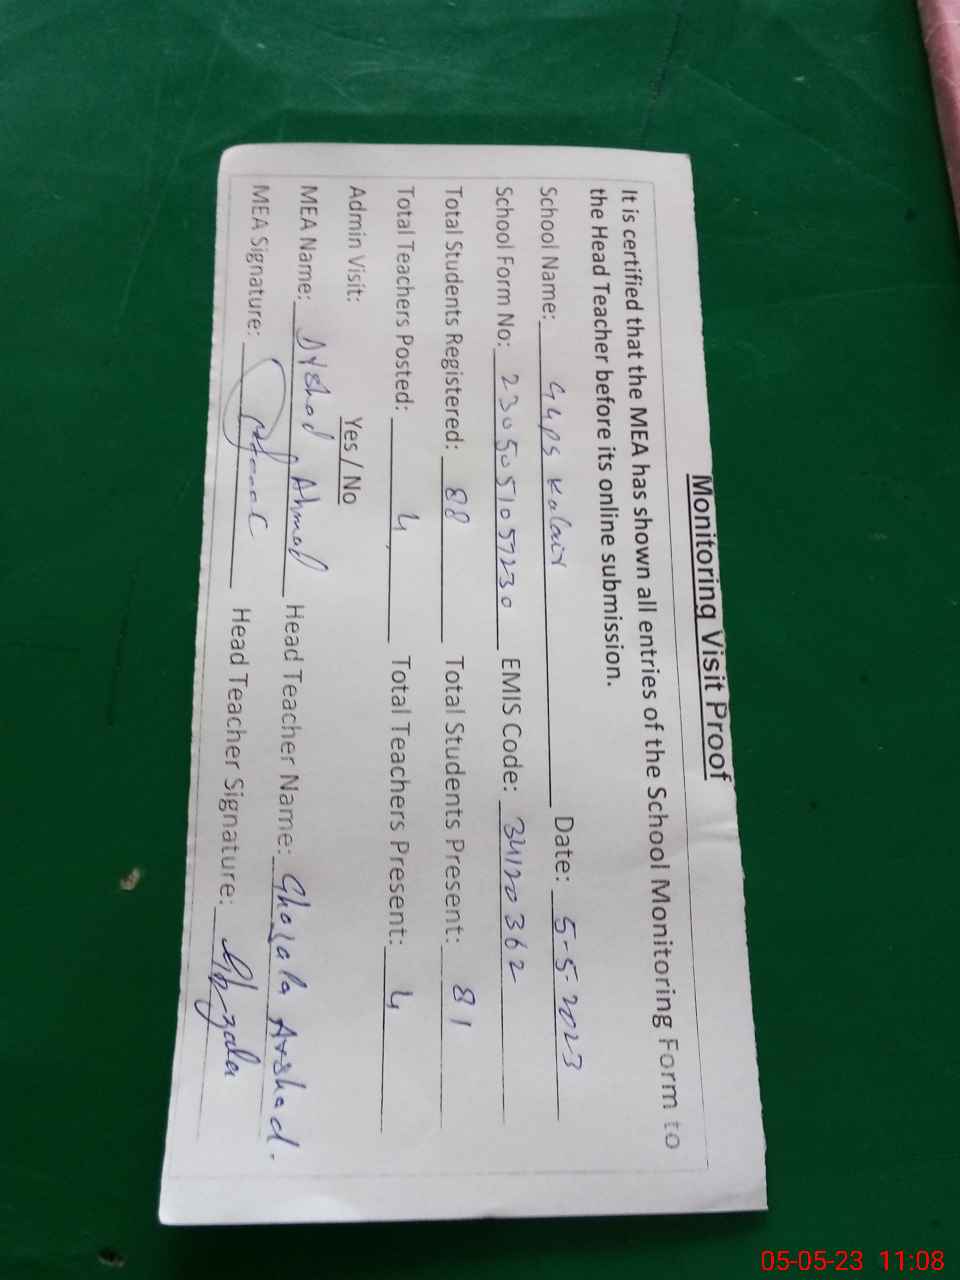 Monitoring Visit Proof
It is certified that the MEA has shown all entries of the School Monitoring Form to
the Head Teacher before its online submission.
School Name: GGPS Kalair Date: 5-5-2023
School Form No: 2305051057230 EMIS Code: 34120362
Total Students Registered: 88 Total Students Present: 81
Total Teachers Posted: 4 Total Teachers Present: 4
Admin Visit: Yes / No
MEA Name: Arshad Ahmad Head Teacher Name: Ghazala Arshad.
MEA Signature: Head Teacher Signature: Ghazala
05-05-23 11:08